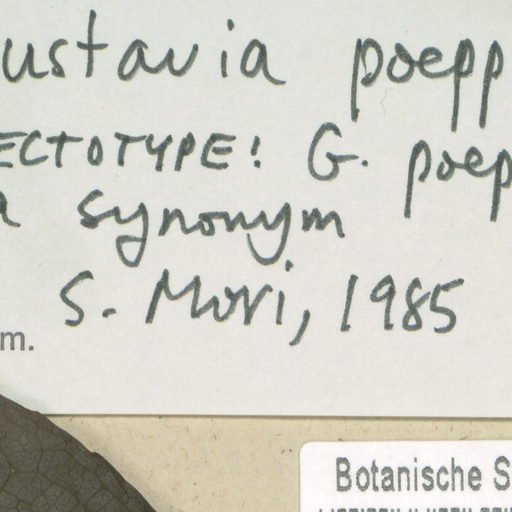 ustavia poepp
ECTOTYPE! G. poep
a synonym
S. Mori, 1985
m.
Botanische S